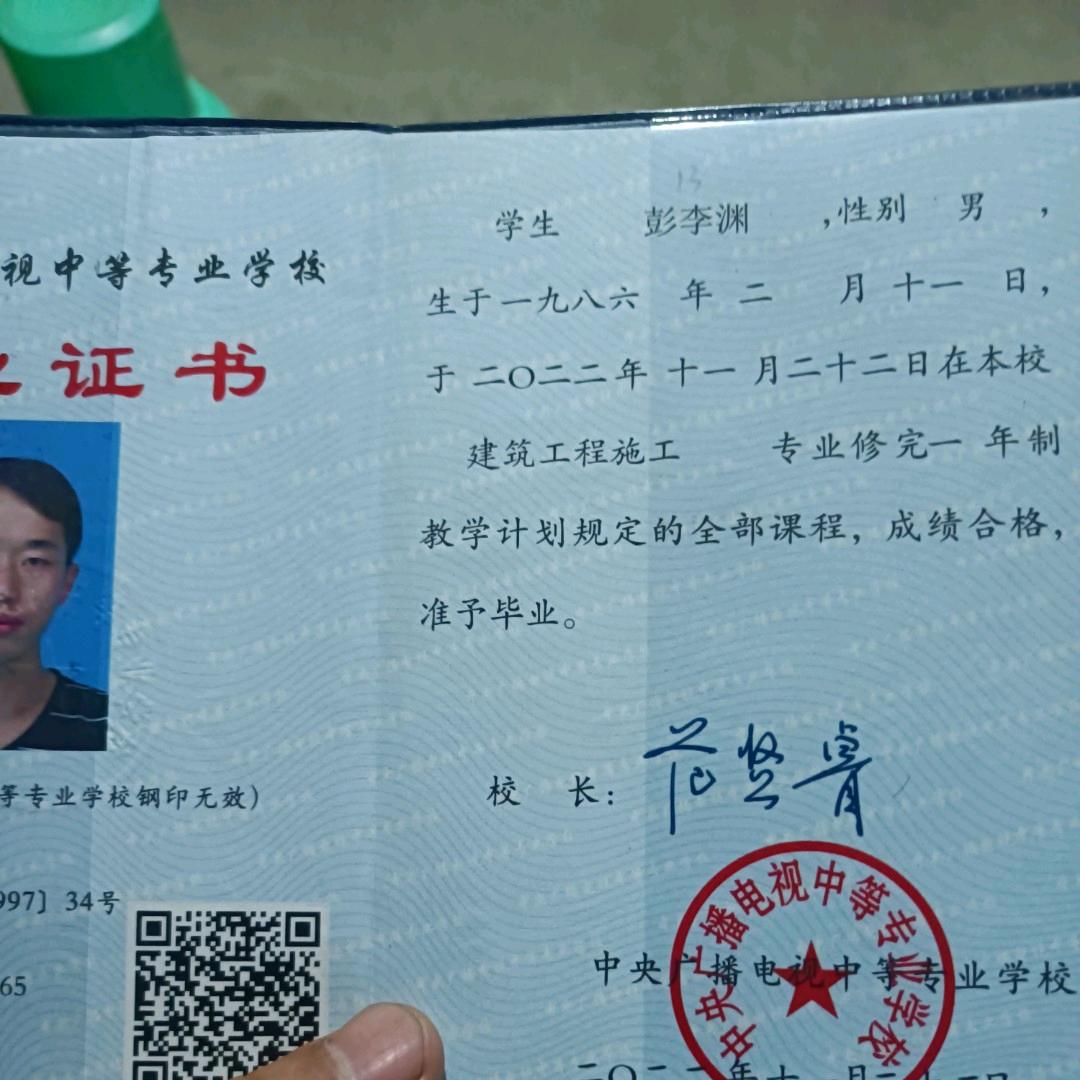 视中等专业学校
证书
等专业学校钢印无效）
997〕34号
65
13
学生 彭李渊 ，性别 男 ，
生于一九八六 年 二 月 十一 日，
于 二〇二二年 十一 月二十二日在本校
建筑工程施工 专业修完一 年制
教学计划规定的全部课程，成绩合格，
准予毕业。
校 长：
中央广播电视中等专业学校
中央广播电视中等专业学校